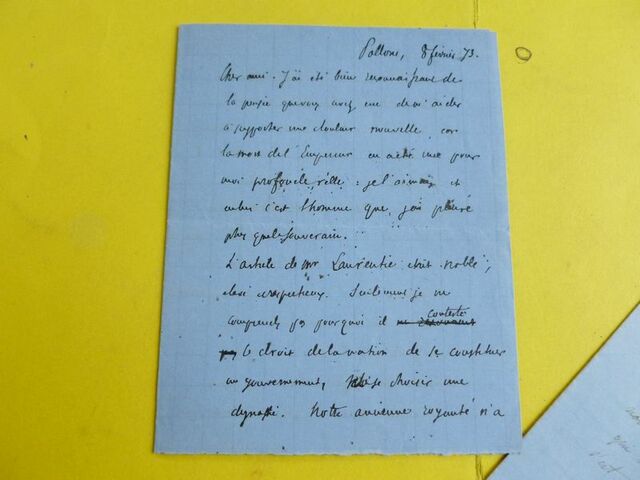 8 février 73.
Cher ami. J'ai été bien reconnaissant de
la pensée que vous avez eue de m'aider
à supporter une douleur nouvelle, car
la mort de l'Empereur en a été une pour
moi profonde, réelle : je l'aimais et
c'est l'homme que j'ai pleuré
plus que le souverain.
L'article de Mr Laurentie était noble,
élevé respectueux. Seulement je ne
comprends pas pourquoi il conteste
le droit de la nation de se constituer
un gouvernement, se choisir une
dynastie. Notre ancienne royauté n'a